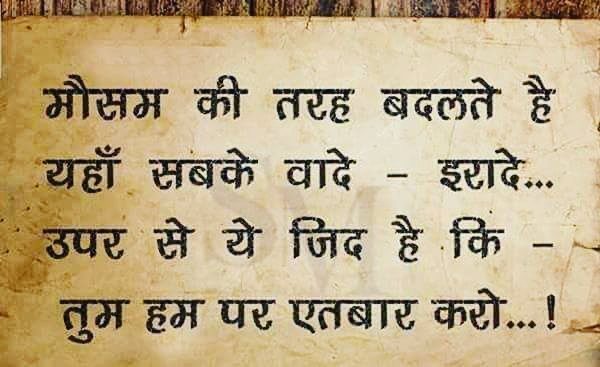 मौसम की तरह बदलते है
यहाँ सबके वादे - इरादे...
उपर से ये जिद है कि -
तुम हम पर एतबार करो...!